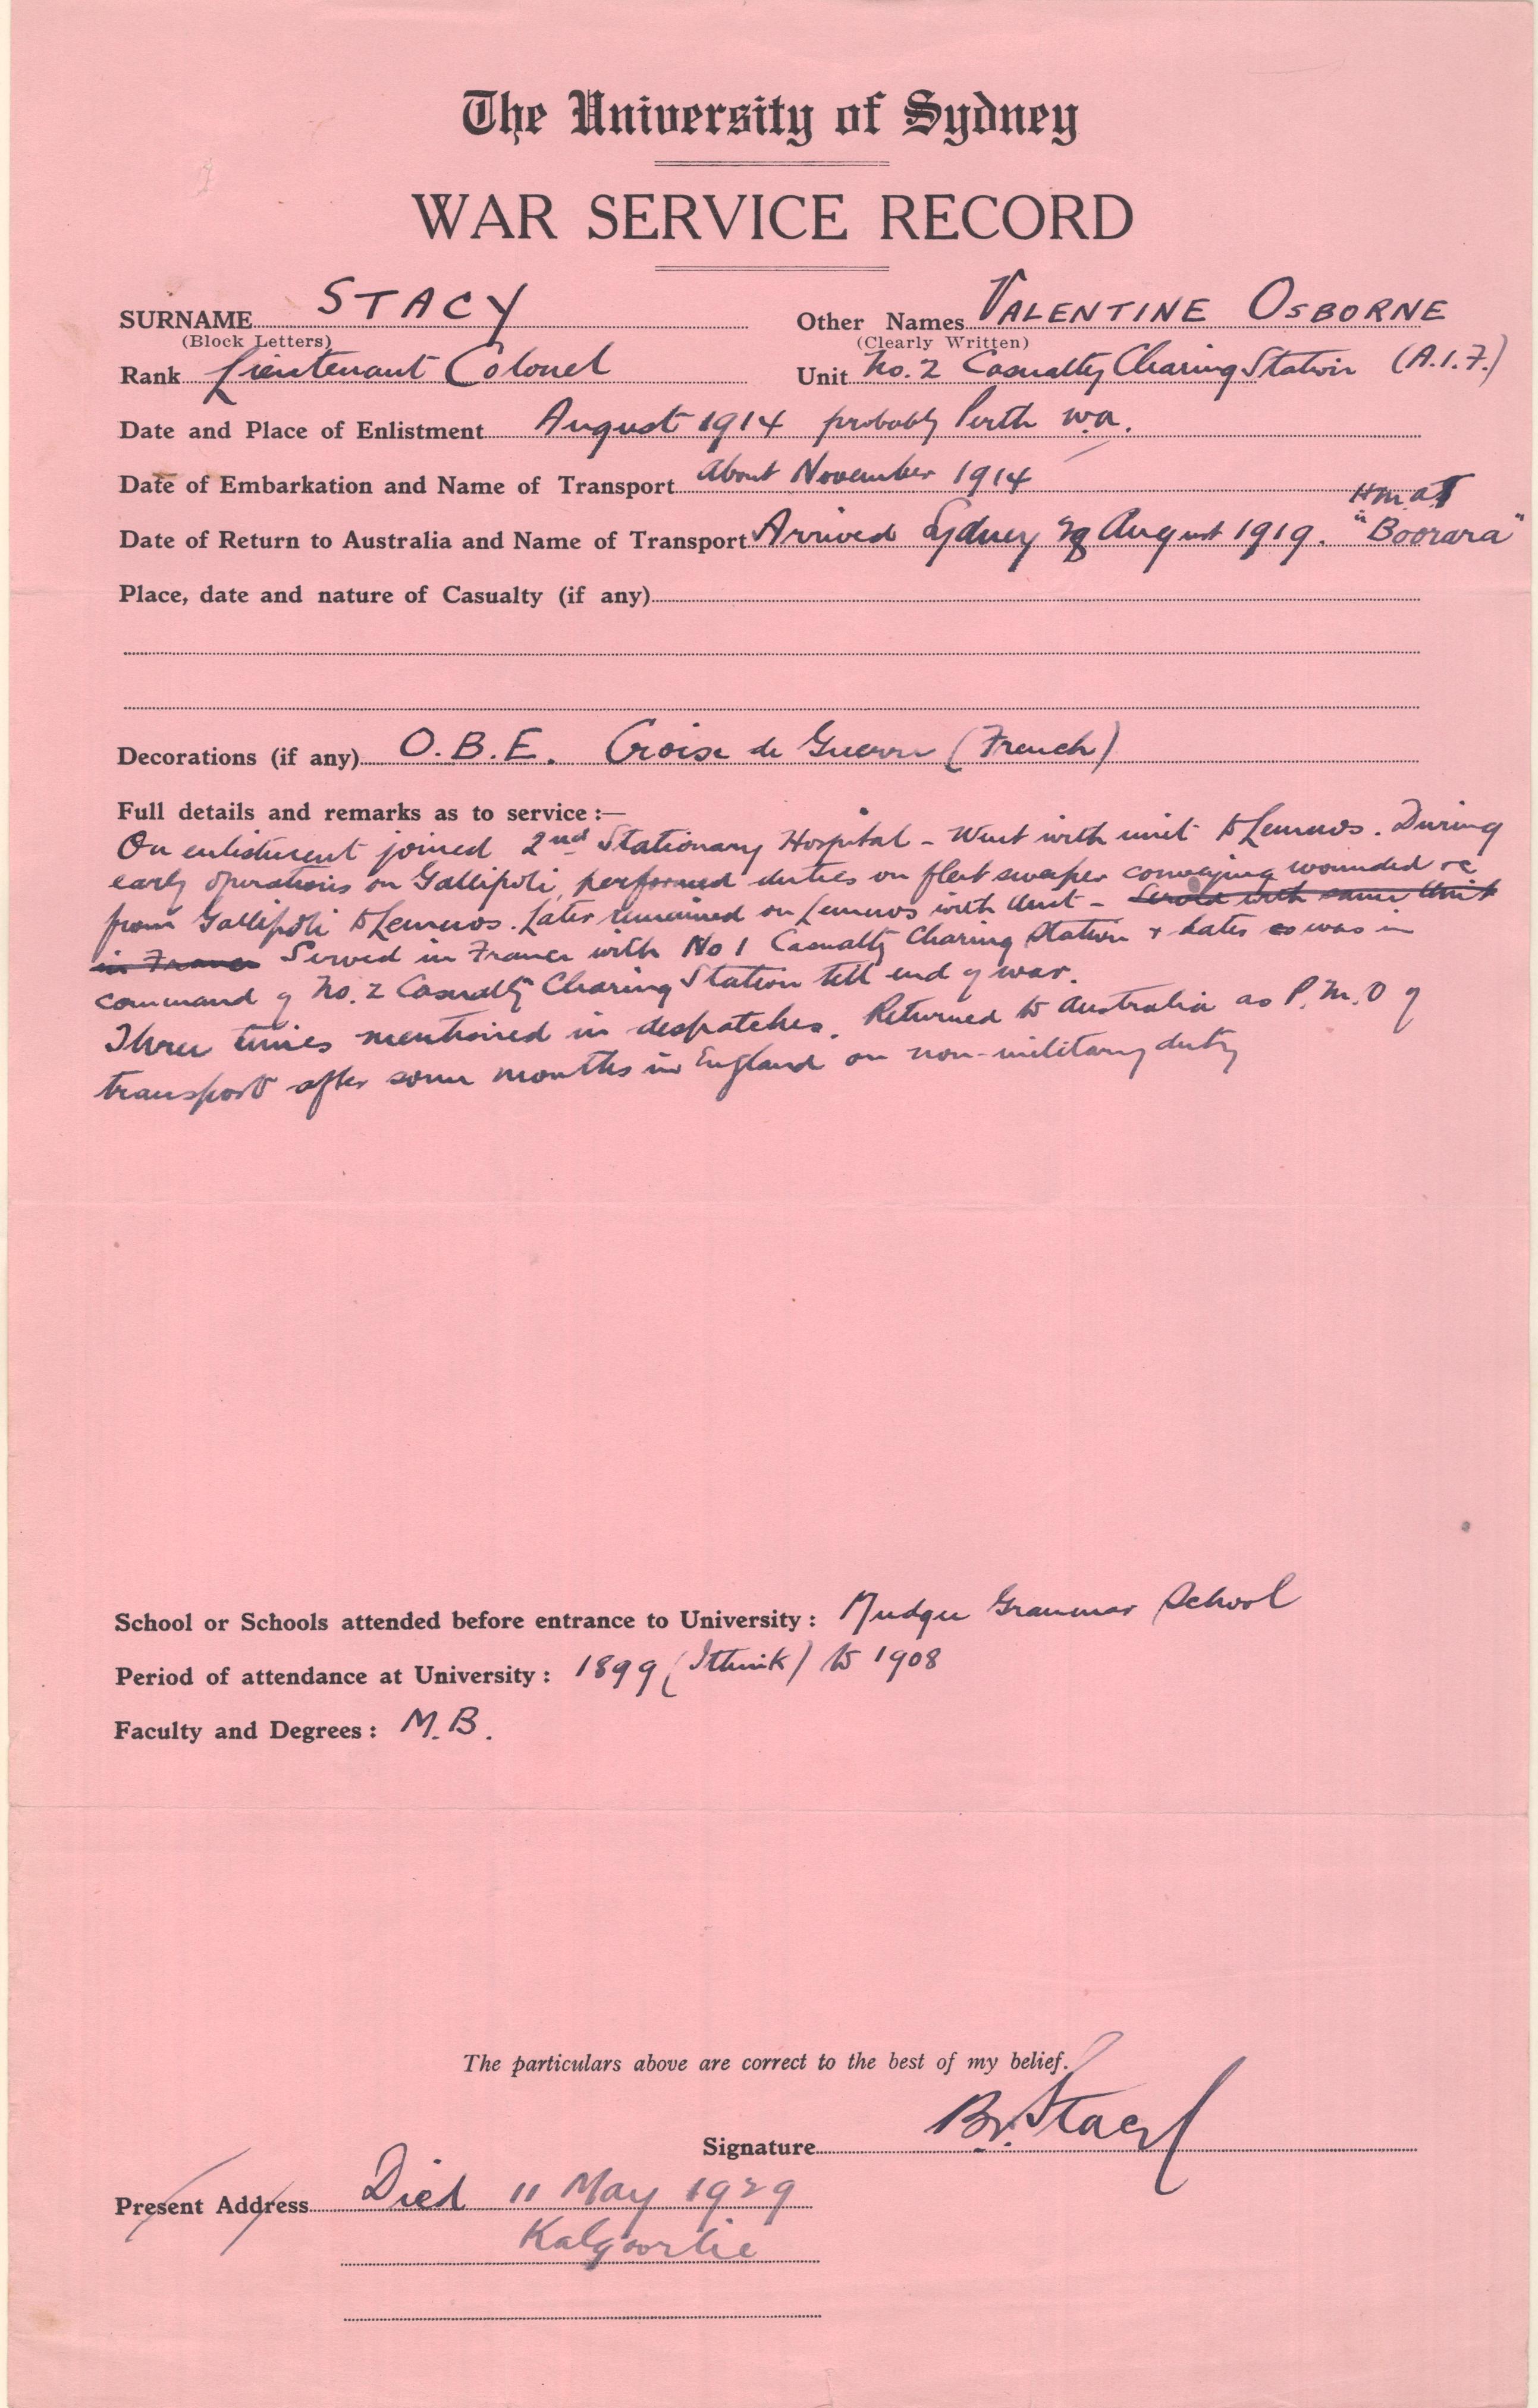 The University of Sydney
WAR SERVICE RECORD
SURNAME STACY Other Names VALENTINE OSBORNE
(Block Letters) (Clearly Written)
Rank Lieutenant Colonel Unit No. 2 Casualty Clearing Station (A.I.F.)
Date and Place of Enlistment August 1914 probably Perth W.A.
Date of Embarkation and Name of Transport about November 1914
HMAT
Date of Return to Australia and Name of Transport Arrived Sydney August 1919. "Boorara"
Place, date and nature of Casualty (if any)
Decorations (if any) O.B.E. Croise de Guerre (French)
Full details and remarks as to service:—
On enlistment joined 2nd Stationary Hospital - Went with unit to Lemnos. During
early operations on Gallipoli, performed duties on fleet sweeper conveying wounded
from Gallipoli to Lemnos. Later remained on Lemnos with Unit - Served with same Unit
in France Served in France with No 1 Casualty Clearing Station & later was in
command of No. 2 Casualty Clearing Station till end of war.
Three times mentioned in despatches. Returned to Australia as P.M.O of
transport after some months in England on non-military duty
School or Schools attended before entrance to University: Mudgee Grammar School
Period of attendance at University: 1899 (I think) to 1908
Faculty and Degrees: M.B.
The particulars above are correct to the best of my belief.
Signature Stacy
Present Address Died 11 May 1929
Kalgoorlie